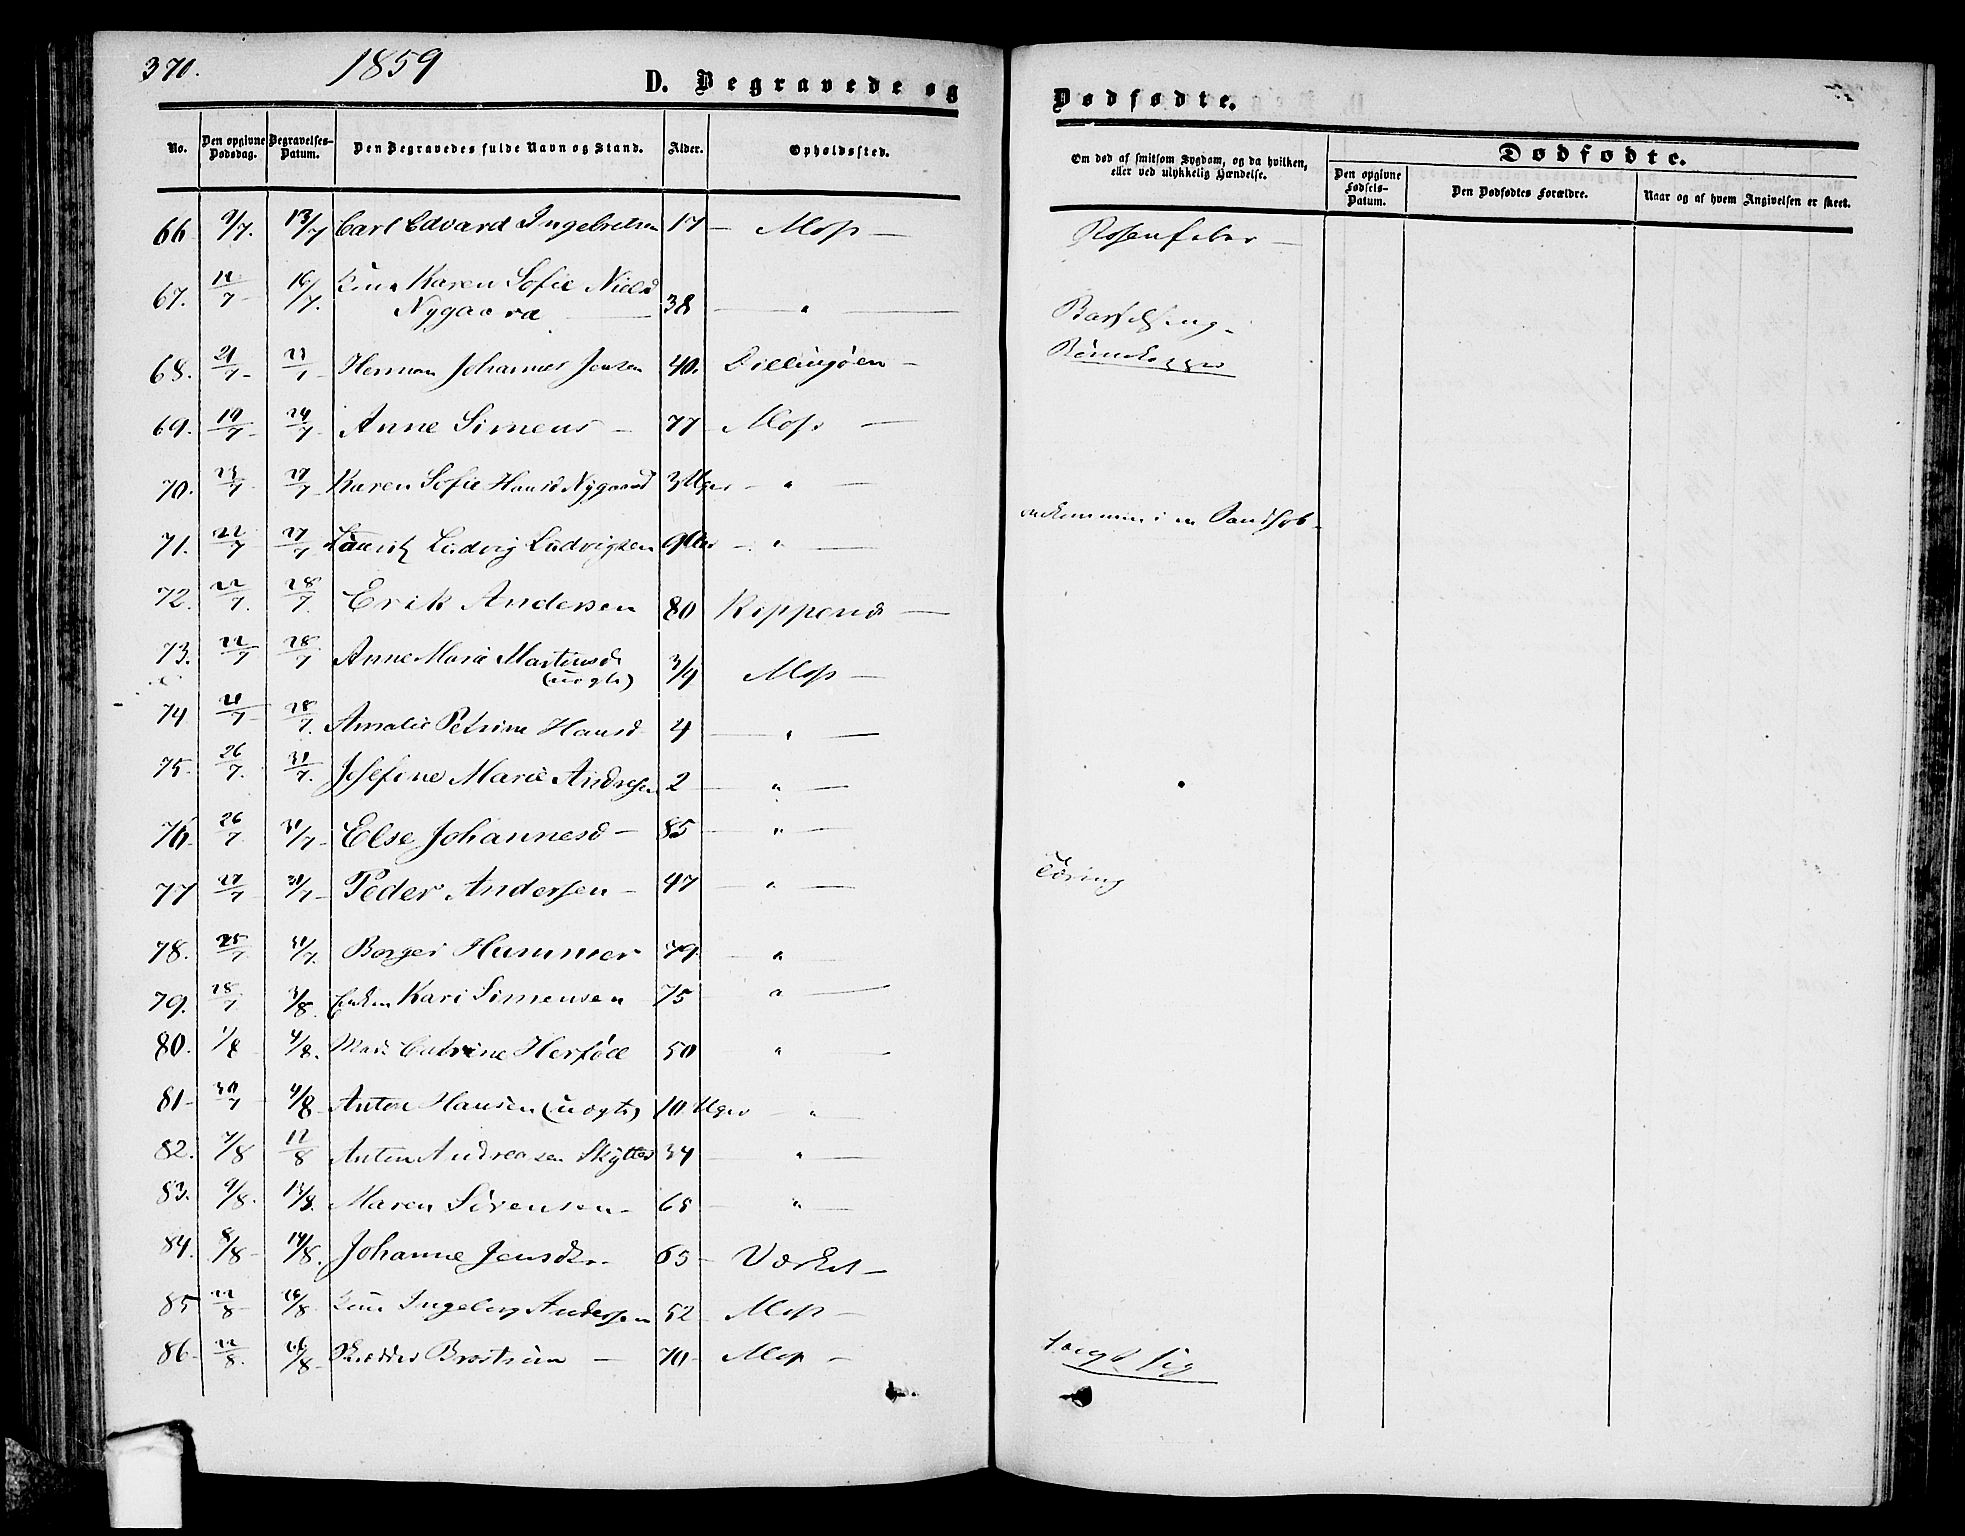 370. 1859
D. Begravede og Dødfødte.
No. Den opgivne Dødsdag. Begravelses-Datum. Den Begravedes fulde Navn og Stand. Alder. Opholdssted. Om død af smitsom Sygdom, og da hvilken, eller ved ulykkelig Hændelse.
Dødfødte.
Den opgivne Fødsels-Datum. Den Dødfødtes Forældre. Naar og af hvem Angivelsen er skeet.
66 9/7. 13/7 Carl Edvard Ingebretsen 17 – Moss – Rosenfeber –
67. 12/7 – 16/7. Karen Sofie Nielsd
Nygaard 38 – " – Barselseng –
68. 21/7 – Herman Johannes Jensen 40. Dillingøen –
69. 19/7 – 24/7 – Anne Simens – 77 – Moss –
70. 23/7 – 27/7 – Karen Sofie Hansd Nygaard 3 Uger – " –
71. 22/7 27/7 Lauritz Ludvig Ludvigsen 9 – " – omkommen i en
72. 22/7. 28/7. Erik Andersen 80 Kippenes –
73. 22/7 28/7 Anne Marie Martinsd
(uægte) 3/4 Moss –
74 28/7. Amalie Petrine Hansd 4 – " –
75. 26/7. 31/7. Josefine Marie Andresen 2 – " –
76 26/7 31/7 – Else Johannesd – 85 – " –
77 27/7 31/7 – Peder Andersen – 47 – " – Tæring
78. 25/7 31/7. Borger Hummer 79. – " –
79. 28/7 3/8. Enken Kari Simensen 75 – " –
80. 1/8 4/8. Mari Catrine Herføll 50 – " –
81 – 30/7 4/8 – Anton Hansen (uægte) 10 Uger – " –
82. 7/8 12/8 Anton Andreasen Skytter 34 – " –
83. 9/8. 13/8. Maren Sørensen – 65 – " –
84. 8/8 – 14/8. Johanne Jensd 65 – Værket –
85 12/8 – 16/8. Ingeborg Andersen 52 – Moss –
86 – 12/8. 16/8 – Brostrøm – 70 – Moss –